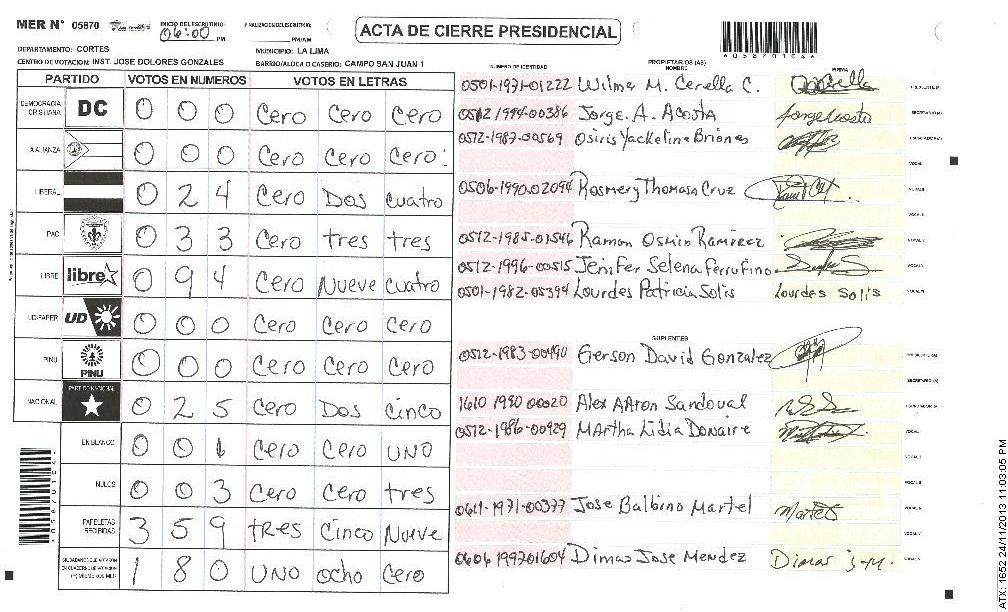 MER N° 05870
INICIO DEL ESCRUTINIO: 06:00 PM
FINALIZACION DEL ESCRUTINIO: PM/AM
ACTA DE CIERRE PRESIDENCIAL
DEPARTAMENTO: CORTES
MUNICIPIO: LA LIMA
CENTRO DE VOTACION: INST. JOSE DOLORES GONZALES
BARRIO/ALDEA O CASERIO: CAMPO SAN JUAN 1
PARTIDO VOTOS EN NUMEROS VOTOS EN LETRAS
DEMOCRACIA CRISTIANA DC 0 0 0 Cero Cero Cero
ALIANZA 0 0 0 Cero Cero Cero
LIBERAL 0 2 4 Cero Dos Cuatro
PAC 0 3 3 Cero tres tres
LIBRE libre 0 9 4 Cero Nueve Cuatro
UD-FAPER UD 0 0 0 Cero Cero Cero
PINU PINU 0 0 0 Cero Cero Cero
NACIONAL PARTIDO NACIONAL 0 2 5 Cero Dos Cinco
EN BLANCO 0 0 1 Cero Cero UNO
NULOS 0 0 3 Cero Cero tres
PAPELETAS RECIBIDAS 3 5 9 tres Cinco Nueve
1 8 0 UNO ocho Cero
NUMERO DE IDENTIDAD PROPIETARIOS (AS) NOMBRE FIRMA
0501-1971-01222 Wilma M. Cerella C.
0512 1994-00386 Jorge. A. Acosta Jorge Acosta
0512-1987-00569 Osiris Yackeline Briones
0506-1990-02094 Rosmery Thomasa Cruz
0512-1985-01546 Ramon Osmin Ramirez
0512-1996-00515 Jenifer Selena Ferrufino
0501-1982-05394 Lourdes Patricia Solis Lourdes Solis
SUPLENTES
0512-1983-00490 Gerson David Gonzalez
1610 1990 00020 Alex AAron Sandoval
0512-1986-00929 MArtha Lidia Donaire
0611-1971-00377 Jose Balbino Martel Martel
0606 1997 01604 Dimas Jose Mendez Dimas J.M.
*05870104*
*05870104*
ATX: 1652 24/11/2013 11:03:05 PM